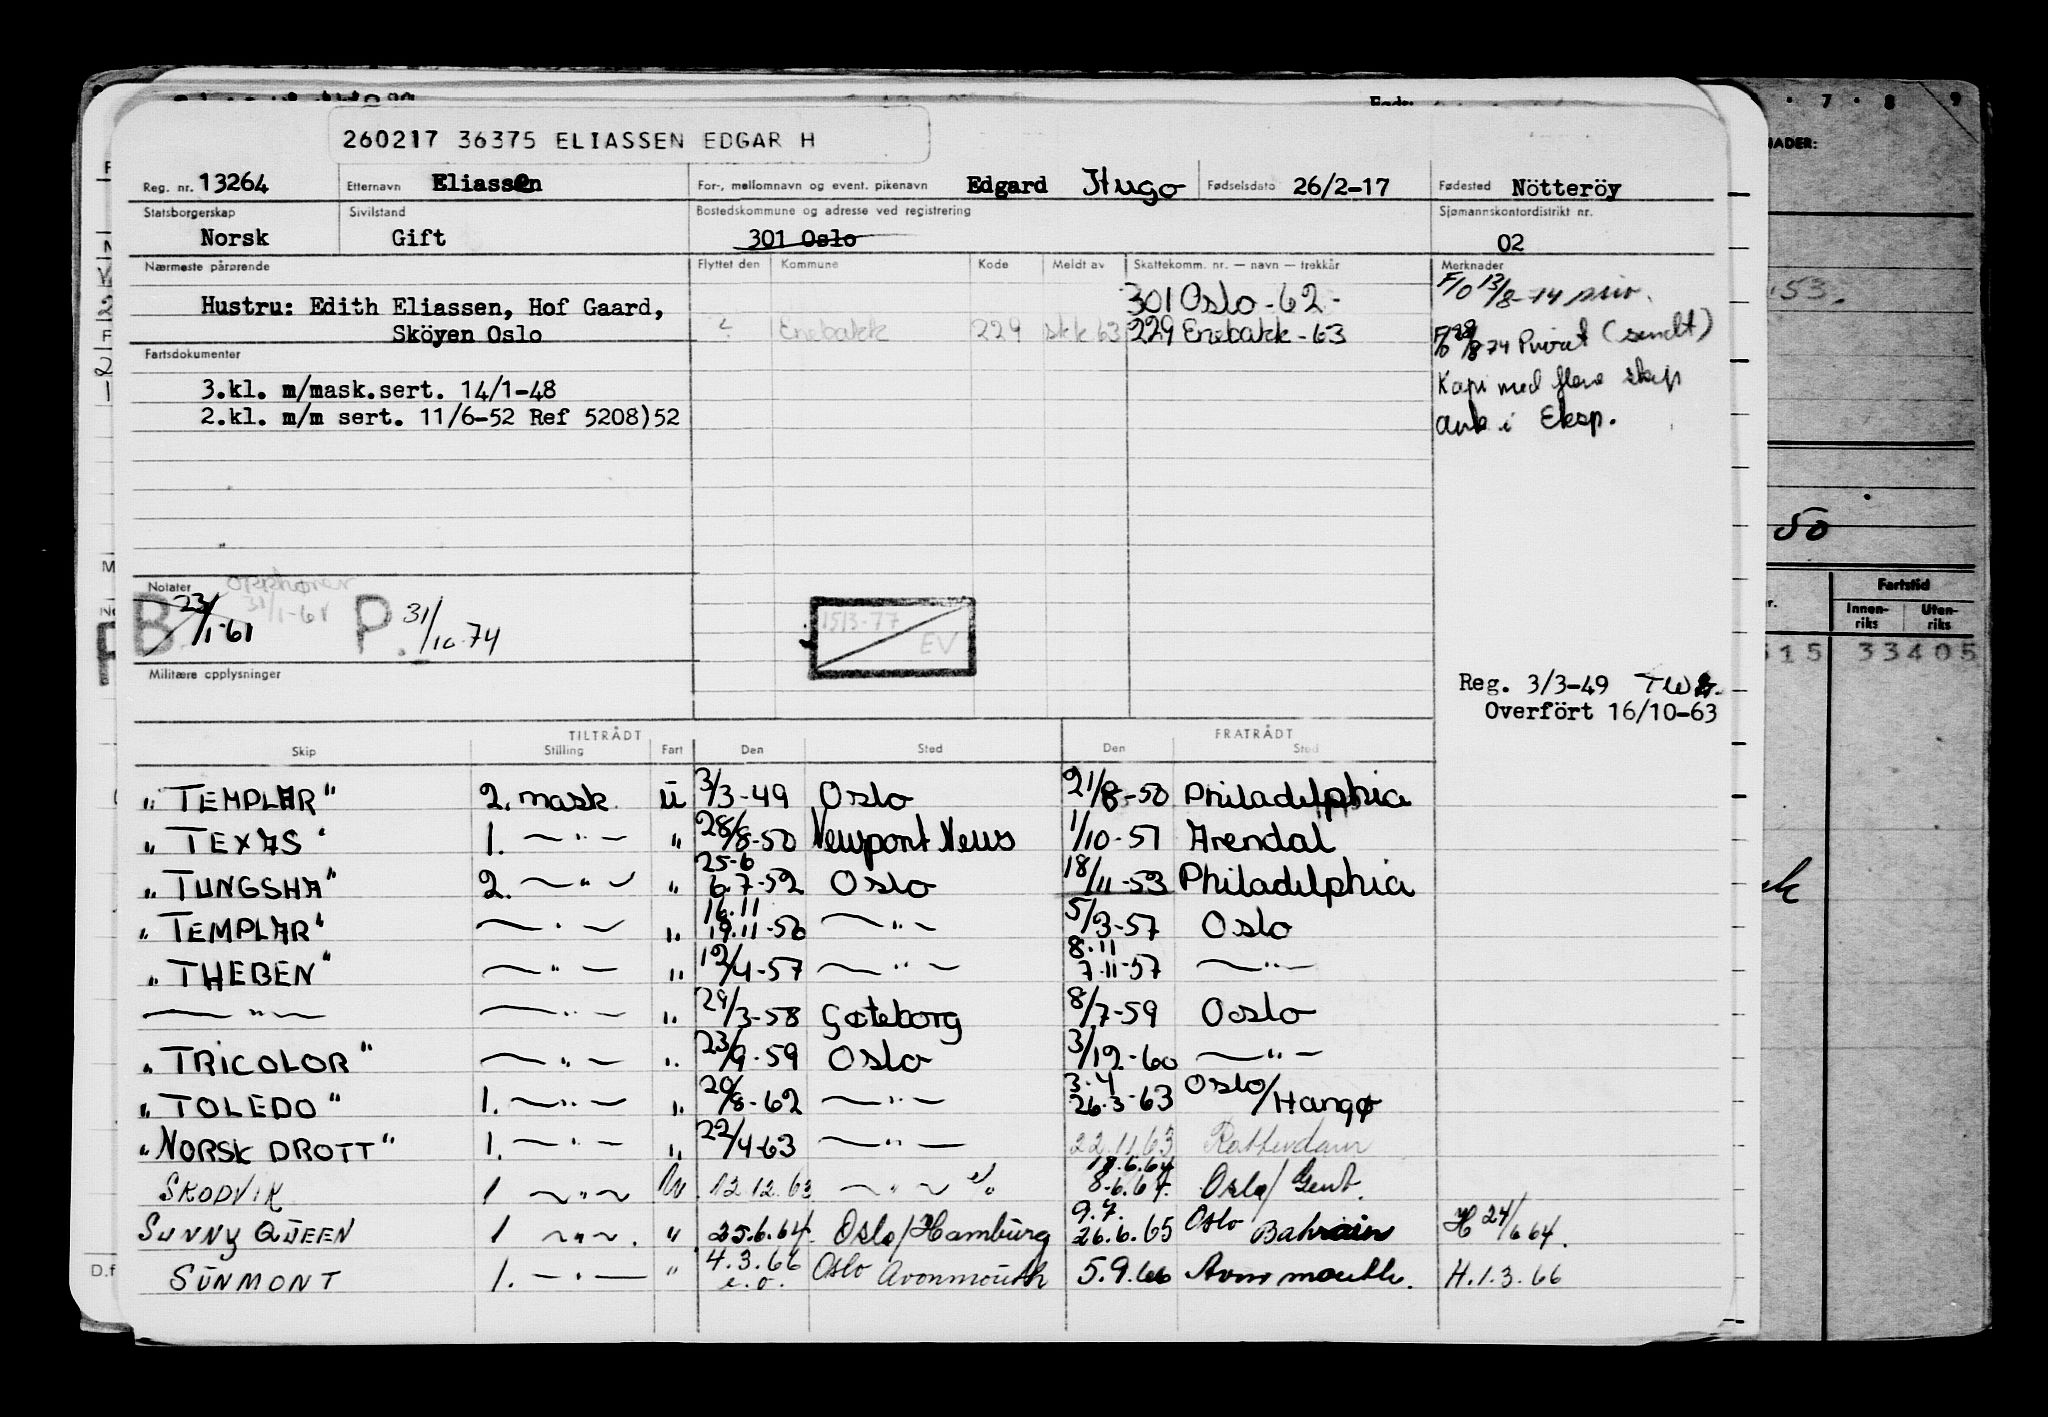 260217 36375 ELIASSEN EDGAR H
Reg. nr. 13264 Etternavn Eliassen For-, mellomnavn og event. pikenavn Edgard Hugo Fødselsdato 26/2-17 Fødested Nötteröy
Statsborgerskap Sivilstand Bostedskommune og adresse ved registrering Sjømannskontordistrikt nr.
Norsk Gift 301 Oslo 02
Nærmeste pårørende Flyttet den Kommune Kode Meldt av Skattekomm. nr. — navn — trekkår Merknader
F/O 13/8-74
Hustru: Edith Eliassen, Hof Gaard, 301 Oslo - 62 -
Sköyen Oslo ? Enebakk 229 skk 63 229 Enebakk - 63
F/O 28/8 74 Privat (sendt)
Fartsdokumenter
3.kl. m/mask.sert. 14/1-48 Kopi med flere skip
2.kl. m/m sert. 11/6-52 Ref 5208)52 i Eksp.
Notater Opphører
31/1-61
B 23/1-61 P. 31/10-74
15/3-77
EV
Militære opplysninger
Reg. 3/3-49
Overfört 16/10-63
TILTRÅDT FRATRÅDT
Skip Stilling Fart Den Sted Den Sted
"TEMPLAR" 2. mask. u 3/3-49 Oslo 21/8-50 Philadelphia
"TEXAS" 1. — " — " 28/8-50 Newport News 1/10-51 Arendal
25-6
"TUNGSHA" 2. — " — " 6.7-52 Oslo 18/11-53 Philadelphia
16.11
"TEMPLAR" — " — " 19.11-56 — " — 5/3-57 Oslo
8.11
"THEBEN" — " — " 12/4-57 — " — 7.11-57 — " —
— " — — " — " 29/3-58 Gøteborg 8/7-59 Oslo
"TRICOLOR" — " — " 23/9-59 Oslo 3/12-60 — " —
3.4
"TOLEDO" 1. — " — " 20/8-62 — " — 26.3-63 Oslo/Hangø
"NORSK DROTT" 1. — " — " 22/4-63 — " — 22.11.63 Rotterdam
18.6.64
SKODVIK 1 — " — 12.12.63 — " — 8.6.64. Oslo/Gent.
9.7.
SUNNY QUEEN 1 — " — . " 25.6.64. Oslo/Hamburg 26.6.65 Oslo Bahrain H 24/6 64.
4.3.66
SUNMONT 1. — " — " e.o. Oslo Avonmouth 5.9.66 Avonmouth. H.1.3.66
7 . 8 9
NADER:
53.
50
Fartstid
Innen-riks Uten-riks
515 33405
D.f